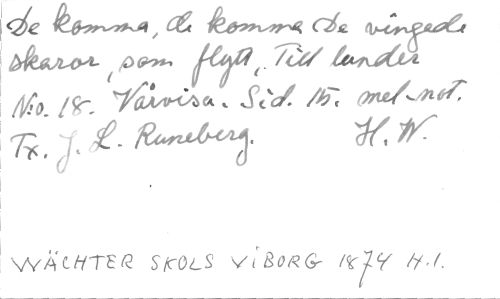 De komma, de komma De vingede
skaror, som flytt, Till lander
N:o. 18. Vårvisa. Sid. 15. mel-not.
Tx. J. L. Runeberg. H. W.
WÄCHTER SKOLS VIBORG 1874 H.1.